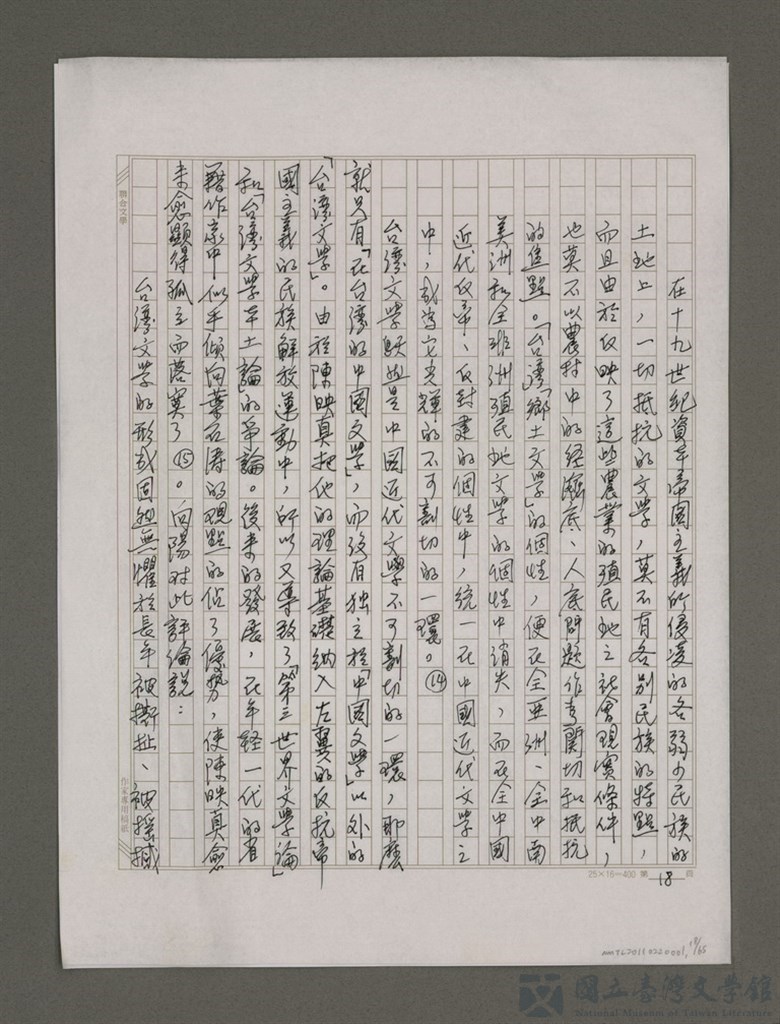 在十九世紀資本帝國主義所侵凌的各弱小民族的
土地上,一切抵抗的文學,莫不有各別民族的特點,
而且由於反映了這些農業的殖民地之社會現實條件,
也莫不以農村中的經濟底、人底問題作書關切和抵抗
的焦點。「台灣「鄉土文學」的個性,便在全亞洲、全中南
美洲和全非洲殖民地文學的個性中消失,而在全中國
近代反帝、反封建的個性中,統一在中國近代文學之
中,成為它光輝的不可割切的一環。⑭
台灣文學既然是中國近代文學不可割切的一環,那麼
就只有「在台灣的中國文學」,而沒有独立於「中國文學」以外的
「台灣文學」。由於陳映真把他的理論基礎納入左翼的反抗帝
國主義的民族解放運動中,所以又導致了「第三世界文學論」
和「台灣文學本土論」的爭論。後來的發展,在年輕一代的省
籍作家中似乎傾向葉石濤的觀點的佔了優勢,使陳映真愈
來愈顯得孤立而落寞了⑮。向陽对此評論說:
台灣文學的形成固然無懼於長年被撕扯、被搖撼
聯合文學
作家專用稿紙
25×16=400 第 18 頁
NMTL20110220001, 18/65
國立臺灣文學館
National Museum of Taiwan Literature